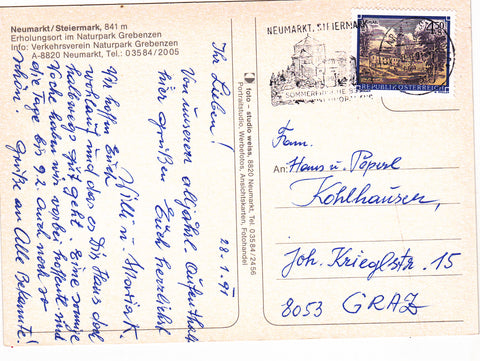 Neumarkt/Steiermark, 841 m
Erholungsort im Naturpark Grebenzen
Info: Verkehrsverein Naturpark Grebenzen
A-8820 Neumarkt, Tel.: 03584/2005
28.1.91
Ihr Lieben!
Von unserem alljährl. Aufenthalt
hier grüßen Euch herzlichst
Willi u. Maria K.
Wir hoffen Euch
wohlauf und das es Dir Hans doch
halbwegs gut geht. Eine sonnige
Woche haben wir vorbei hoffentl. sind
die Tage bis 9.2. auch noch so
schön. Grüße an Alle Bekannte!
foto – studio weiss, 8820 Neumarkt, Tel. 03584/2456
Portraitstudio, Werbefotos, Ansichtskarten, Fotohandel
NEUMARKT, STEIERMARK
SOMMERFRISCHE
4.50
REPUBLIK ÖSTERREICH
Fam.
An: Hans u. Pepperl
Kohlhauser,
Joh. Krieglstr. 15
8053 GRAZ